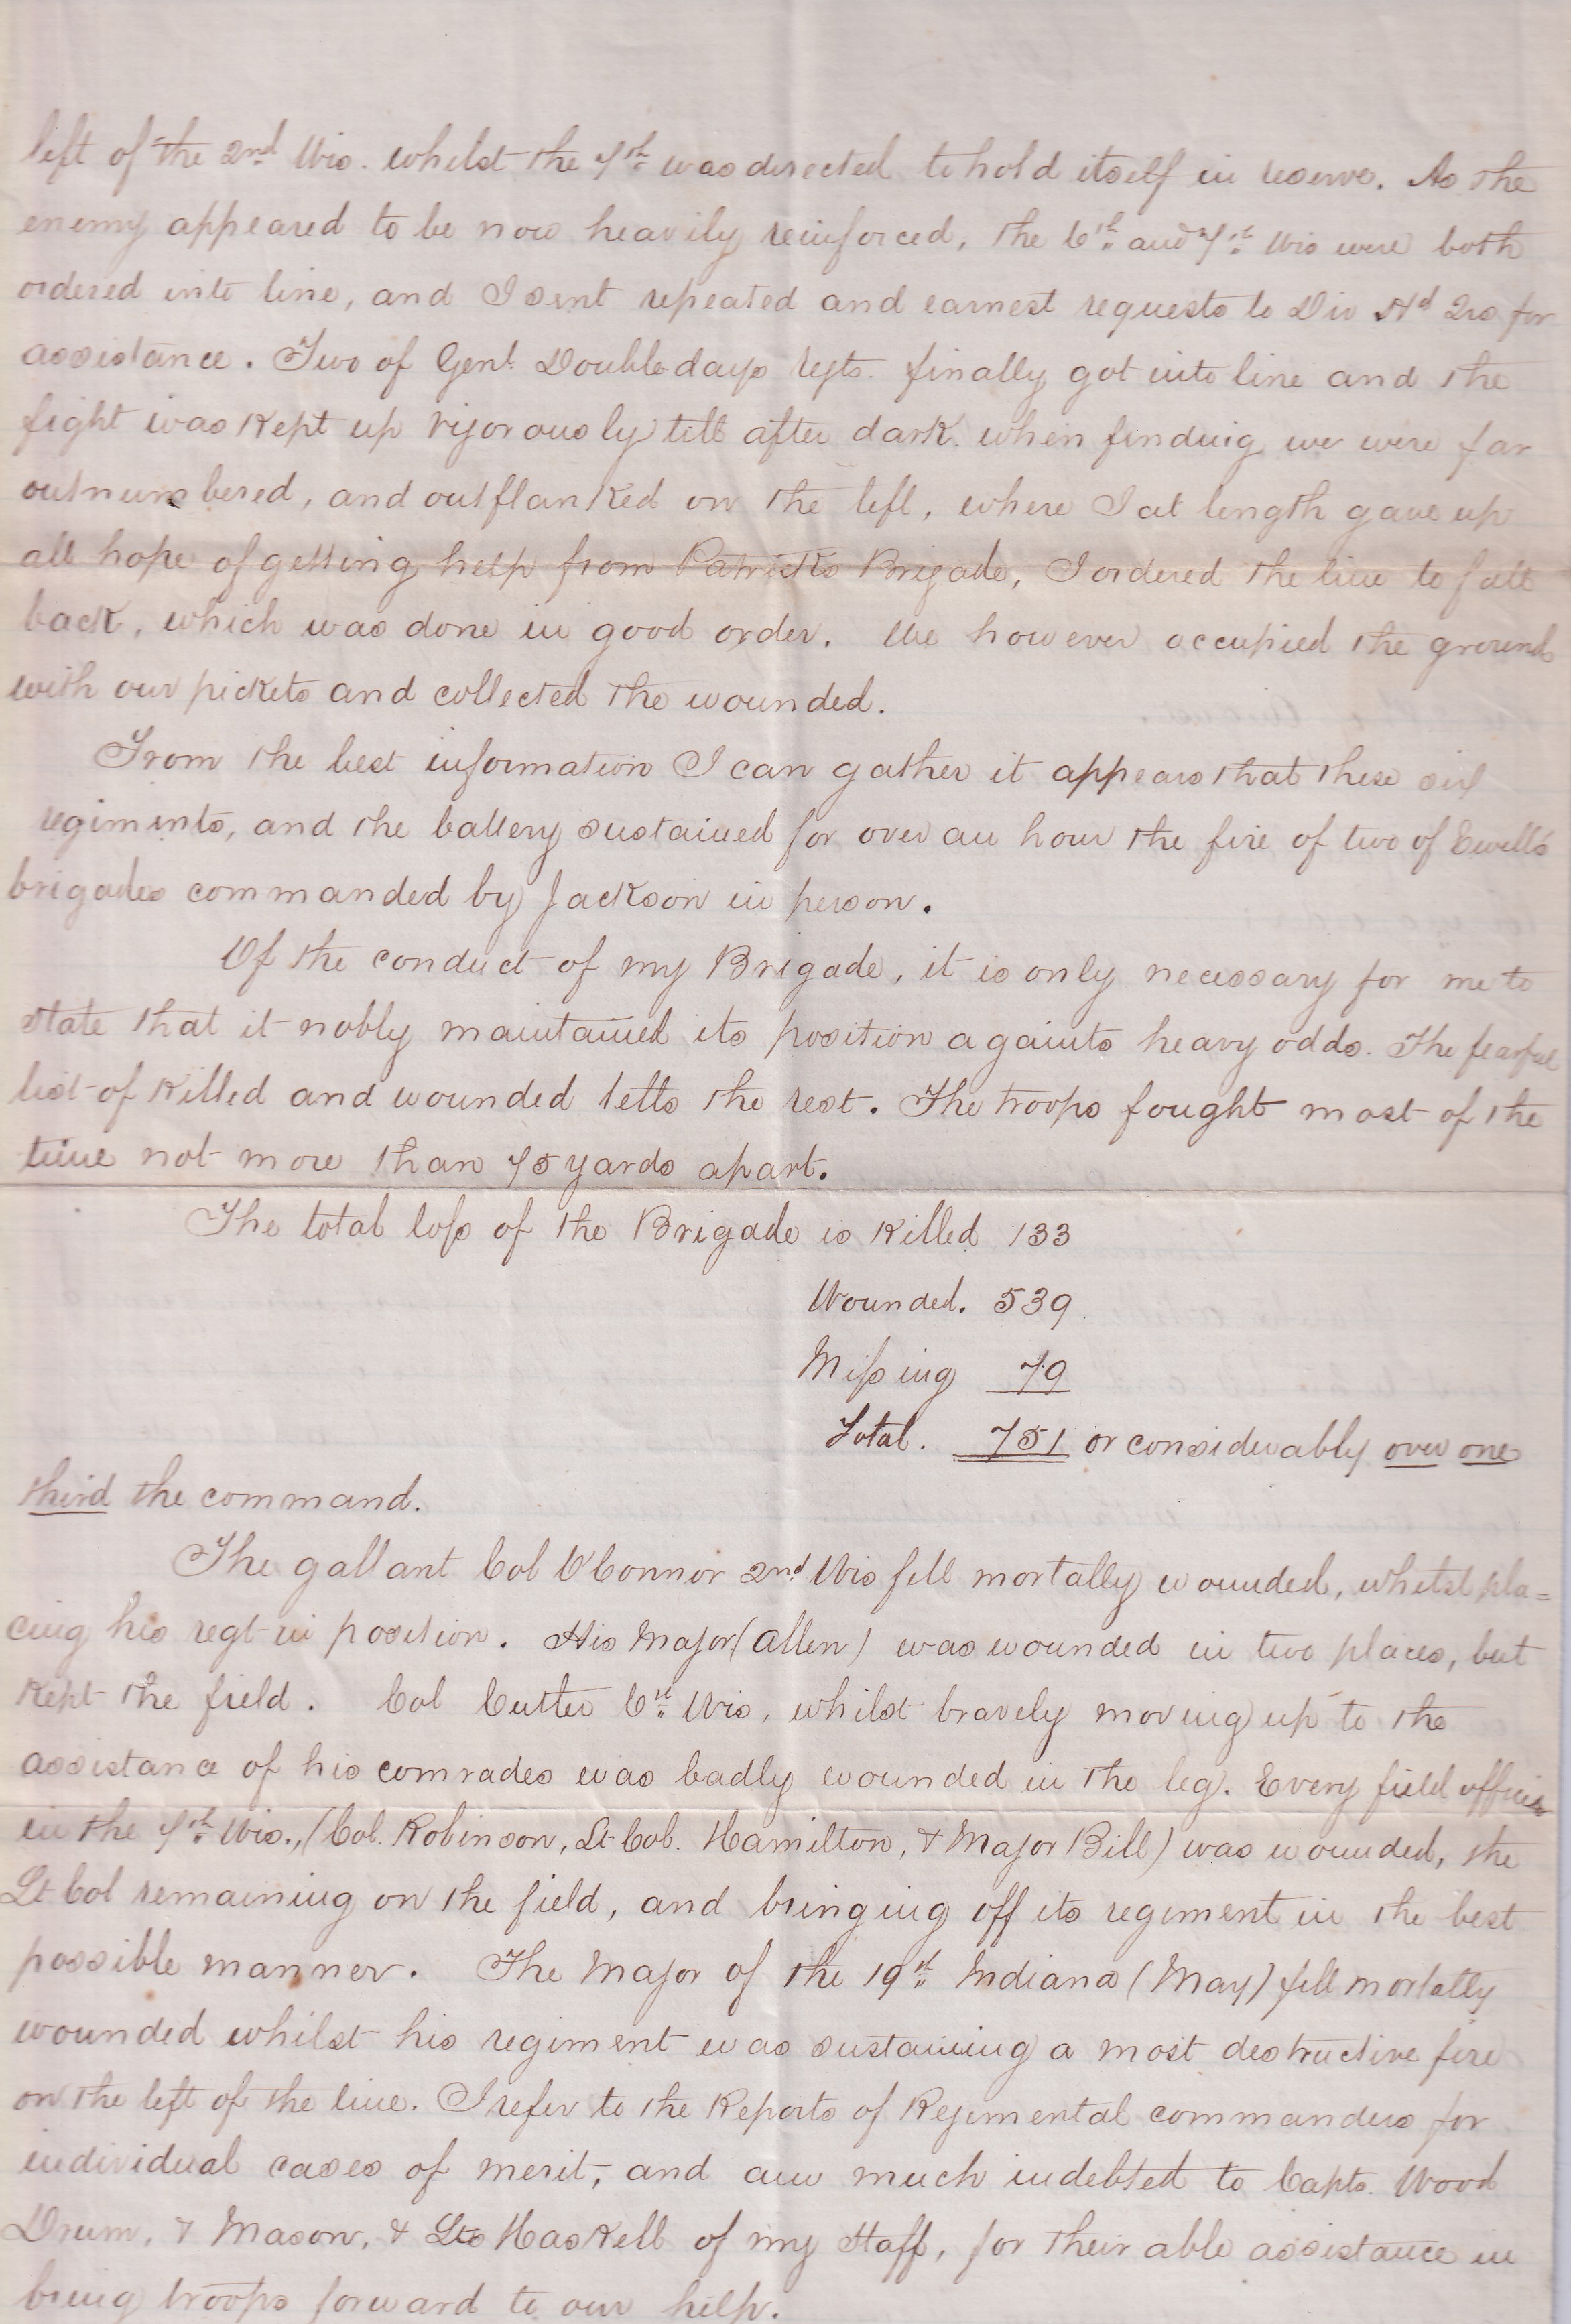 left of the 2nd Wis. whilst the 7th was directed to hold itself in reserve. As the
enemy appeared to be now heavily reinforced, the 6th and 7th Wis were both
ordered into line, and I sent repeated and earnest requests to Div Hd Qrs for
assistance. Two of Genl Doubledays regts. finally got into line and the
fight was kept up vigorously till after dark. when finding we were far
outnumbered, and outflanked on the left, where I at length gave up
all hope of getting help from Patricks Brigade, I ordered the line to fall
back, which was done in good order. We however occupied the ground
with our pickets and collected the wounded.
From the best information I can gather it appears that these six
regiments, and the battery sustained for over an hour the fire of two of Ewell's
brigades commanded by Jackson in person.
Of the conduct of my Brigade, it is only necessary for me to
state that it nobly maintained its position againts heavy odds. The fearful
list of killed and wounded tells the rest. The troops fought most of the
time not more than 75 yards apart.
The total loss of the Brigade is killed 133
Wounded. 539
Missing 79
Total. 751 or considerably over one
third the command.
The gallant Col O'Connor 2nd Wis fell mortally wounded, whilst pla=
cing his regt in position. His Major (Allen) was wounded in two places, but
kept the field. Col Cutler 6th Wis, whilst bravely moving up to the
assistance of his comrades was badly wounded in the leg. Every field officer
in the 7th Wis., (Col. Robinson, Lt Col. Hamilton, & Major Bill) was wounded, the
Lt Col remaining on the field, and bringing off its regiment in the best
possible manner. The Major of the 19th Indiana (May) fell mortally
wounded whilst his regiment was sustaining a most destructive fire
on the left of the line. I refer to the Reports of Regimental commanders for
individual cases of merit, and am much indebted to Capts. Wood
Drum, & Mason, & Lts Haskell of my Staff, for their able assistance in
bring troops forward to our help.